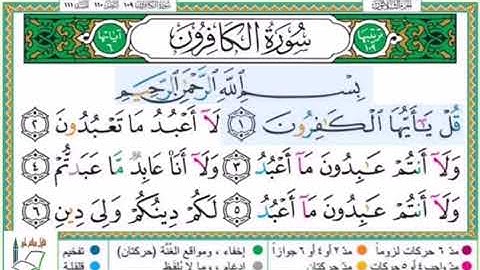 سُورَةُ الكَافِرُونَ
ترتيبها ١٠٩
آياتها ٦
بِسْمِ اللَّهِ الرَّحْمَٰنِ الرَّحِيمِ
قُلْ يَٰٓأَيُّهَا ٱلْكَٰفِرُونَ ١ لَآ أَعْبُدُ مَا تَعْبُدُونَ ٢
وَلَآ أَنتُمْ عَٰبِدُونَ مَآ أَعْبُدُ ٣ وَلَآ أَنَا۠ عَابِدٌ مَّا عَبَدتُّمْ ٤
وَلَآ أَنتُمْ عَٰبِدُونَ مَآ أَعْبُدُ ٥ لَكُمْ دِينُكُمْ وَلِىَ دِينِ ٦
مدّ ٦ حركات لزوماً مدّ ٢ أو ٤ أو ٦ جوازاً إخفاء، ومواقع الغُنَّة (حركتان) تفخيم
مدّ واجب ٤ أو ٥ حركات مدّ حركتان إدغام، وما لا يُلفَظ قلقلة